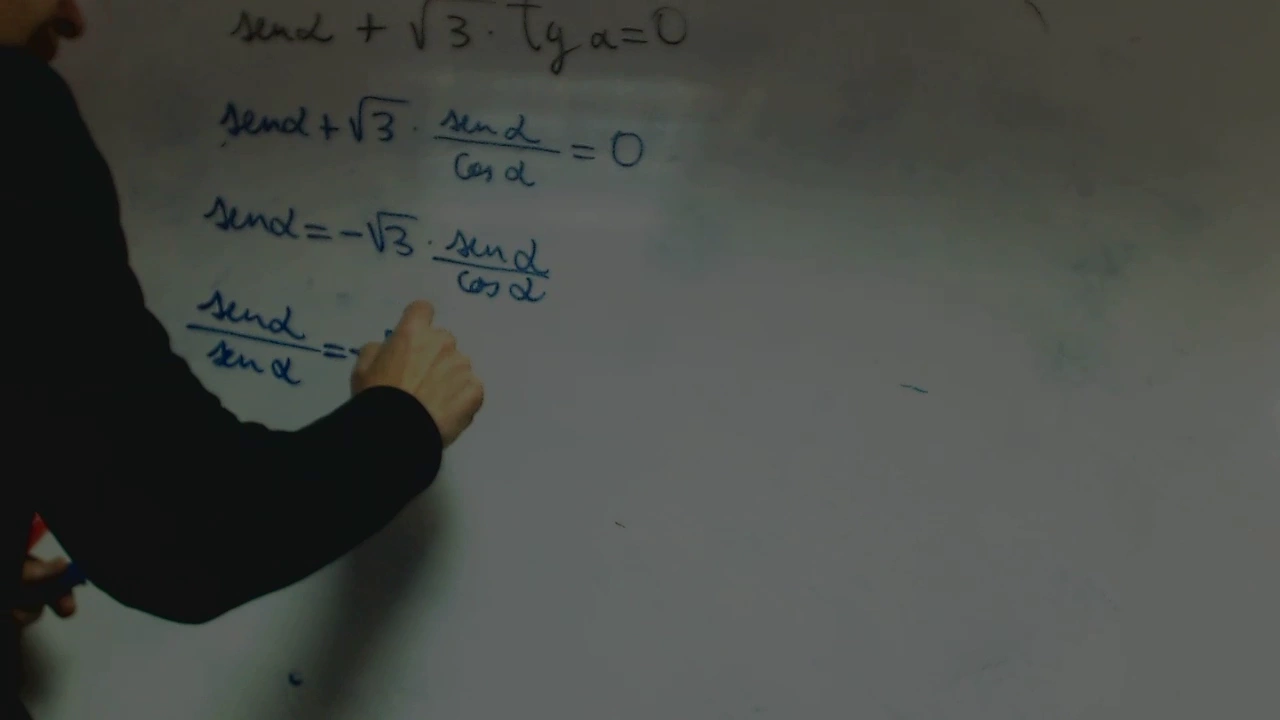 senα + √3 · Tg α = 0
senα + √3 · senα/cosα = 0
senα = -√3 · senα/cosα
senα/senα = -